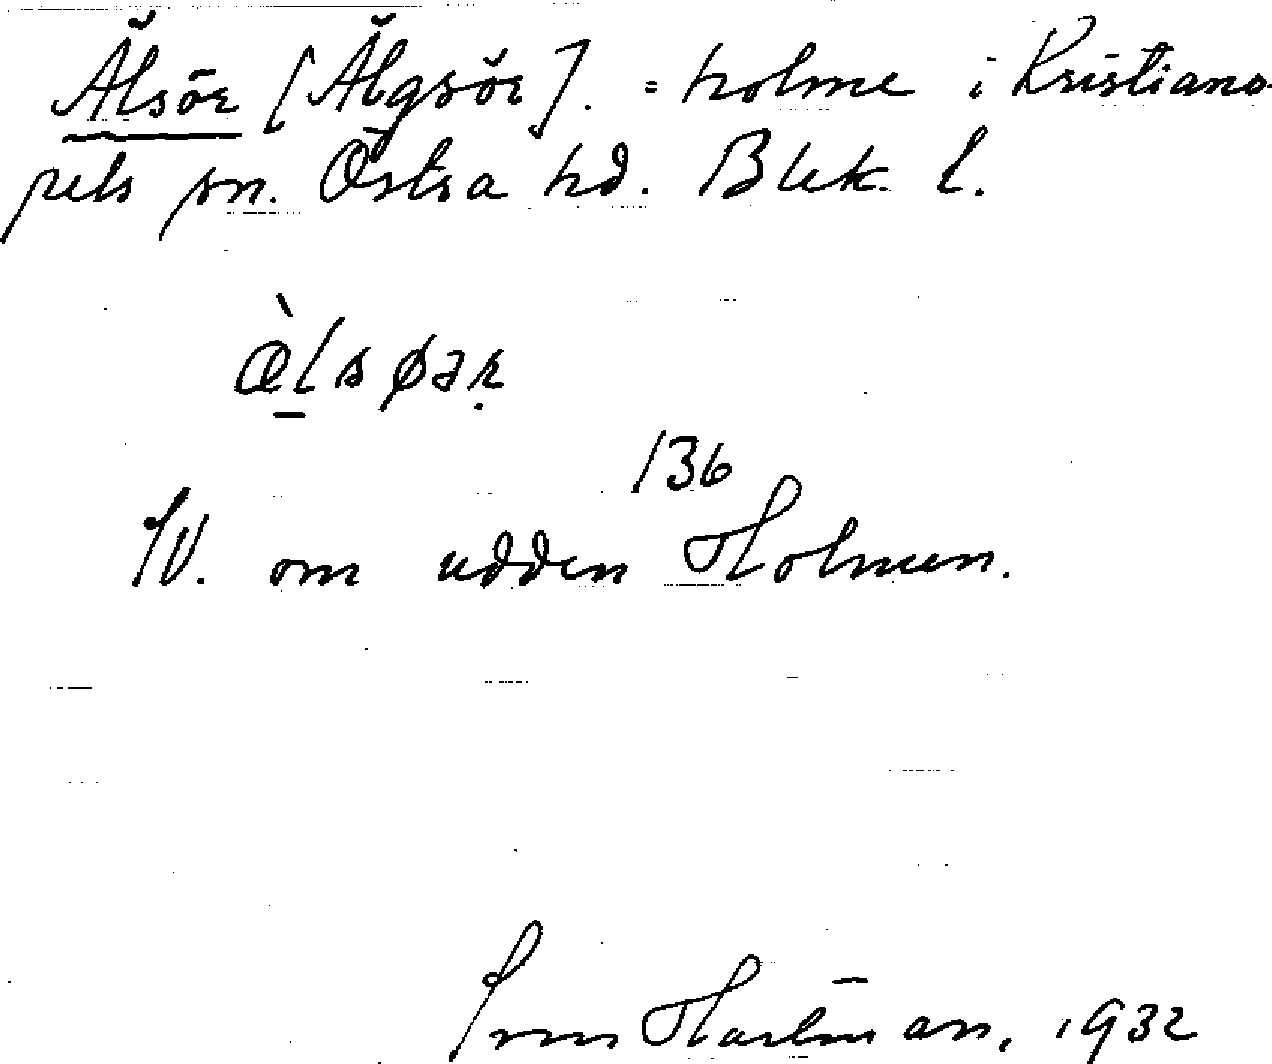 Älsör [Älgsör]. = holme i Kristiano
pels sn. Östra hd. Blek. l.
æ̀lsøəṛ
136
SV. om udden Holmen.
Hartman, 1932